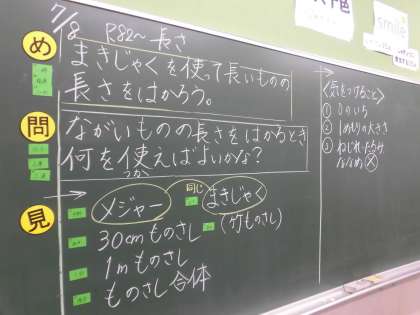 7/8 P82〜 長さ
め
まきじゃくを使って長いものの
長さをはかろう。
問
ながいものの長さをはかるとき
何を使えばよいかな?
つか
見
メジャー 同じ まきじゃく
30cmものさし (竹ものさし)
1mものさし
ものさし合体
<気をつけること>
① 0のいち
② 1めもりの大きさ
③ ねじれ、たるみ
ななめ ×
smile
色